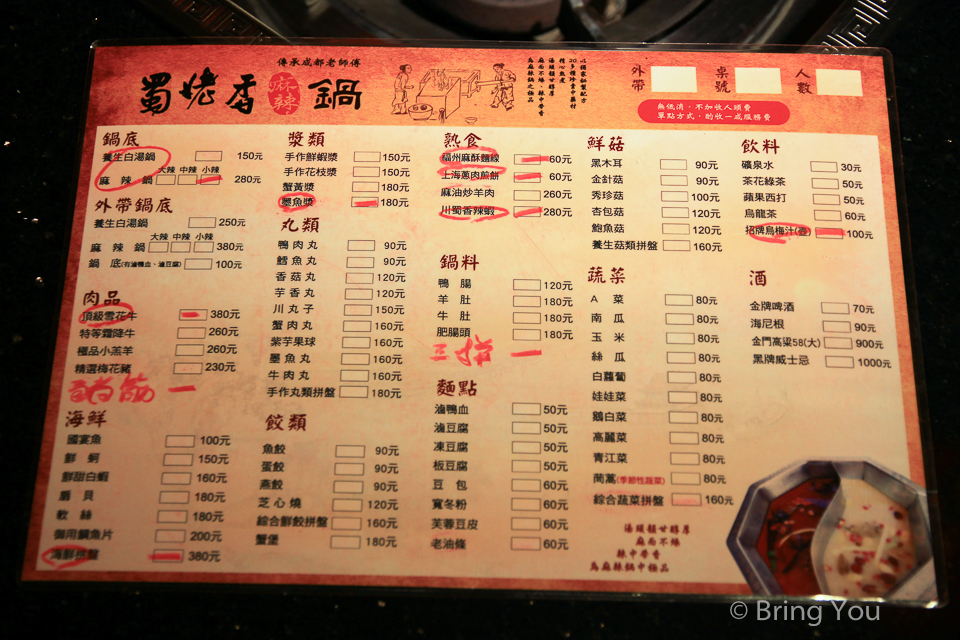 傳承成都老師傅
蜀烤香麻辣鍋
以獨家秘製配方
20多種珍貴中藥材
精心熬煮
湯頭順口甘醇厚
麻而不燥、辣中帶香
為麻辣鍋之極品
外帶
桌號
人數
無低消．不加收人頭費
單點方式．酌收一成服務費
鍋底
養生白湯鍋 150元
大辣 中辣 小辣
麻辣鍋 280元
外帶鍋底
養生白湯鍋 250元
大辣 中辣 小辣
麻辣鍋 380元
鍋底(有滷鴨血、滷豆腐) 100元
肉品
頂級雪花牛 380元
特等霜降牛 260元
極品小羔羊 260元
精選梅花豬 230元
一
海鮮
國宴魚 100元
鮮蚵 150元
鮮甜白蝦 160元
扇貝 180元
軟絲 180元
御用鯛魚片 200元
海鮮拼盤 380元
漿類
手作鮮蝦漿 150元
手作花枝漿 150元
蟹黃漿 180元
墨魚漿 180元
丸類
鴨肉丸 90元
鱈魚丸 90元
香菇丸 120元
芋香丸 120元
川丸子 150元
蟹肉丸 160元
紫芋果球 160元
墨魚丸 160元
牛肉丸 160元
手作丸類拼盤 180元
餃類
魚餃 90元
蛋餃 90元
燕餃 90元
芝心燒 120元
綜合鮮餃拼盤 160元
蟹堡 180元
熟食
福州麻酥麵線 60元
上海蔥肉煎餅 60元
麻油炒羊肉 260元
川蜀香辣蝦 280元
鍋料
鴨腸 120元
羊肚 180元
牛肚 180元
肥腸頭 180元
三拼 一
麵點
滷鴨血 50元
滷豆腐 50元
凍豆腐 50元
板豆腐 50元
豆包 60元
寬冬粉 60元
芙蓉豆皮 60元
老油條 60元
鮮菇
黑木耳 90元
金針菇 90元
秀珍菇 100元
杏包菇 120元
鮑魚菇 120元
養生菇類拼盤 160元
蔬菜
A菜 80元
南瓜 80元
玉米 80元
絲瓜 80元
白蘿蔔 80元
娃娃菜 80元
鵝白菜 80元
高麗菜 80元
青江菜 80元
茼蒿(季節性蔬菜) 80元
綜合蔬菜拼盤 160元
湯頭順甘醇厚
麻而不燥
辣中帶香
為麻辣鍋中極品
飲料
礦泉水 30元
茶花綠茶 50元
蘋果西打 50元
烏龍茶 60元
招牌烏梅汁(壺) 100元
酒
金牌啤酒 70元
海尼根 90元
金門高粱58(大) 900元
黑牌威士忌 1000元
© Bring You